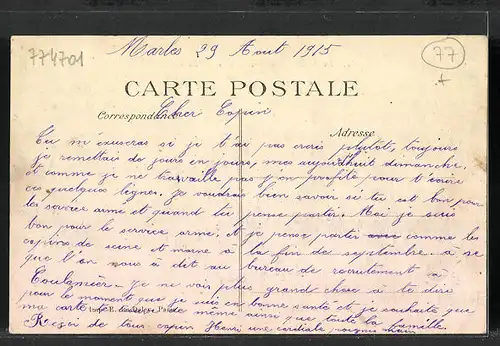 774701
Marles 29 Aout 1915
77
CARTE POSTALE
Correspondance
Cher Copin
Adresse
Tu m'éxuseras si je t'ai pas ecris plutôt, toujours
je remettais de jours en jours, mes aujourd'huit dimanche,
et comme je ne travaille pas j'en profite pour t'écrire
ces quelques lignes. Je voudrais bien savoir si tu est bon pour
les service armé et quand tu pense partir. Moi je suis
bon pour le service armé, et je pense partir avec comme les
copins de seine et marne à la fin de septembre à se
que l'on nous à dit au bureau de recrutement à
Coulomnier. Je ne vois plus grand chose à te dire
pour le moment que je suis en bonne santé et je souhaite que
ma carte te trouve de même ainsi que toute la famille.
Reçoi de ton copin Henri une cordiale poignée main